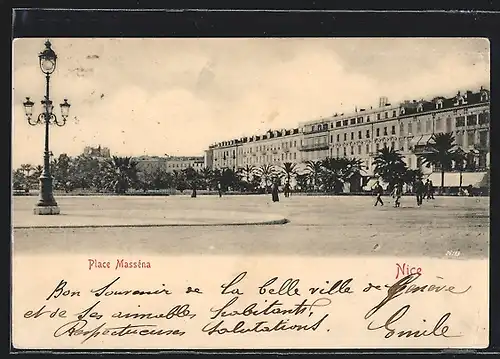 Place Masséna
Nice
Bon Souvenir de La belle ville de Genève
et de ses aimables habitants,
Respectueuses Salutations! Emile